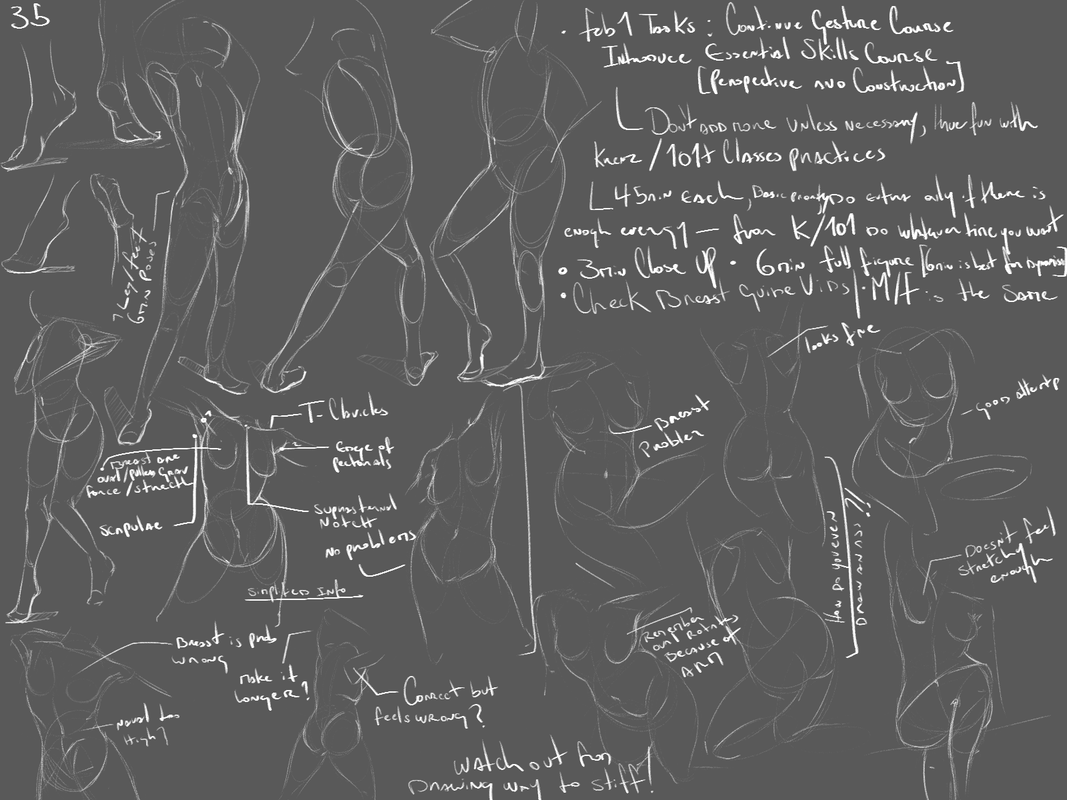 35
• Feb 1 Tasks : Continue Gesture Course
Introduce Essential Skills Course
[Perspective and Construction]
Dont add more unless necessary, Have fun with
/ 101+ Classes practices
45min Each, Do extra only if there is
enough energy — from K/101 Do whatever time you want
• 3min Close Up • 6min full figure [6min is best for Dynamism]
• Check Breast guide Vids | • M/F is the Same
? Leg/feet
6min Poses
looks fine
T- Clavicles
Breast
Problem
good attempt
Edge of
pectorals
Breast are
and/pulled
force/stretch
Scapulae
Suprasternal
Notch
No problems
Simplified Info
How do you even
Draw an ass??
Doesn't
Stretchy feel
enough
Breast is prob
wrong
make it
longer?
Remember
and Rotates
Because of
ARM
Correct but
feels wrong?
Navel too
High?
Watch out for
Drawing way to stiff!